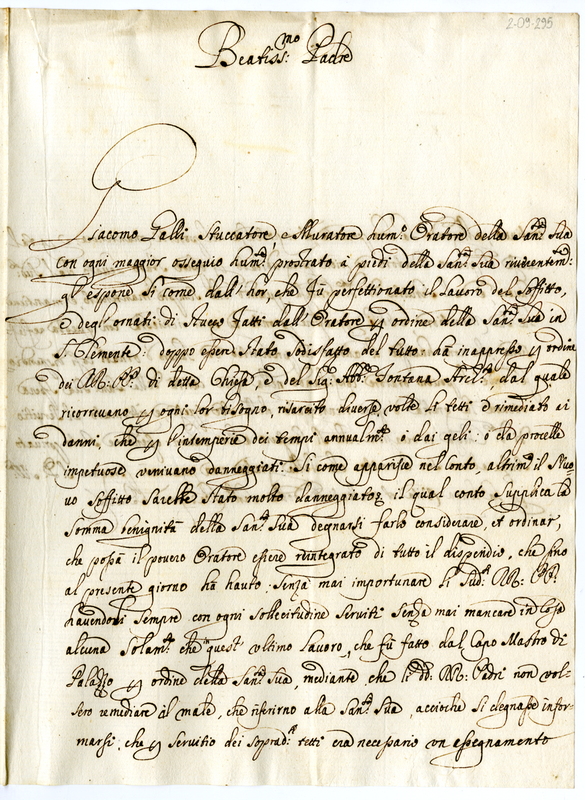 2-09-295
Beatiss:mo Padre
Giacomo Galli Stuccatore, e Muratore hum:o Oratore della San:tà Sua
con ogni maggior ossequio hum:te prostrato à piedi della San:tà Sua riverentem:te
gl'espone si come dall'hor, che fù perfettionato il lavoro del soffitto,
e degl'ornati di stucco fatti dall'Oratore per ordine della San:tà Sua in
S. Clemente: doppo esser stato sodisfatto del tutto ha inappresso per ordine
dei RR: PP: di detta Chiesa, e del Sig:r Abb:e Fontana Arch:o dal quale
ricorrevano per ogni lor bisogno, risarcito diverse volte li tetti e rimediato ai
danni, che per l'intemperie dei tempi annualm:te ò dai geli: ò da procelle
impetuose venivano danneggiati: Si come apparisce nel Conto, altrim:ti il Nuo
vo soffitto sarebbe stato molto danneggiato; il qual conto supplica la
somma benignità della San:tà Sua degnarsi farlo considerare, et ordinar,
che possa il povero Oratore essere reintegrato di tutto il dispendio, che fino
al presente giorno ha hauto: Senza mai importunare li sud:i RR: PP:
havendoli sempre con ogni sollecitudine serviti senza mai mancare in cosa
alcuna solam:te che quest'ultimo lavoro, che fù fatto dal Capo Mastro di
Palazzo per ordine della San:tà Sua, mediante, che li dd: RR: Padri non vol-
sero remediare al male, che riferirno alla San:tà Sua, acciochè si degnasse infor-
marsi, che per servitio dei soprad:i tetti era necessario un assegnamento